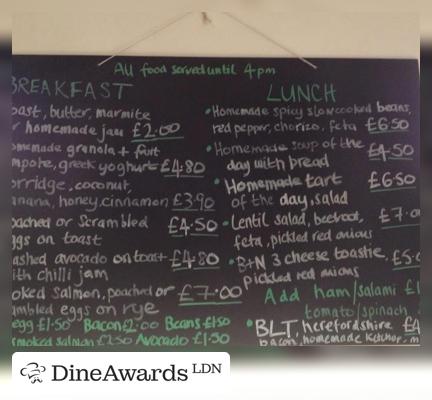 All food served until 4pm
BREAKFAST
oast, butter, marmite
r homemade jam £2.00
omemade granola + fruit
mpote, greek yoghurt £4.80
orridge, coconut,
anana, honey, cinnamon £3.90
oached or scrambled £4.50
ggs on toast
ashed avocado on toast £4.80
ith chilli jam
oked salmon, poached or £7.00
ambled eggs on rye
egg £1.50 Bacon £2.00 Beans £1.50
smoked salmon £2.50 Avocado £1.50
LUNCH
• Homemade spicy slow cooked beans,
red pepper, chorizo, feta £6.50
• Homemade soup of the £4.50
day with bread
• Homemade tart £6.50
of the day, salad
• Lentil salad, beetroot, £7.0
feta, pickled red onions
• B+N 3 cheese toastie, £5.0
pickled red onions
Add ham/salami £1
tomato/spinach
• BLT, herefordshire £4
bacon, homemade ketchup, m
DineAwards LDN